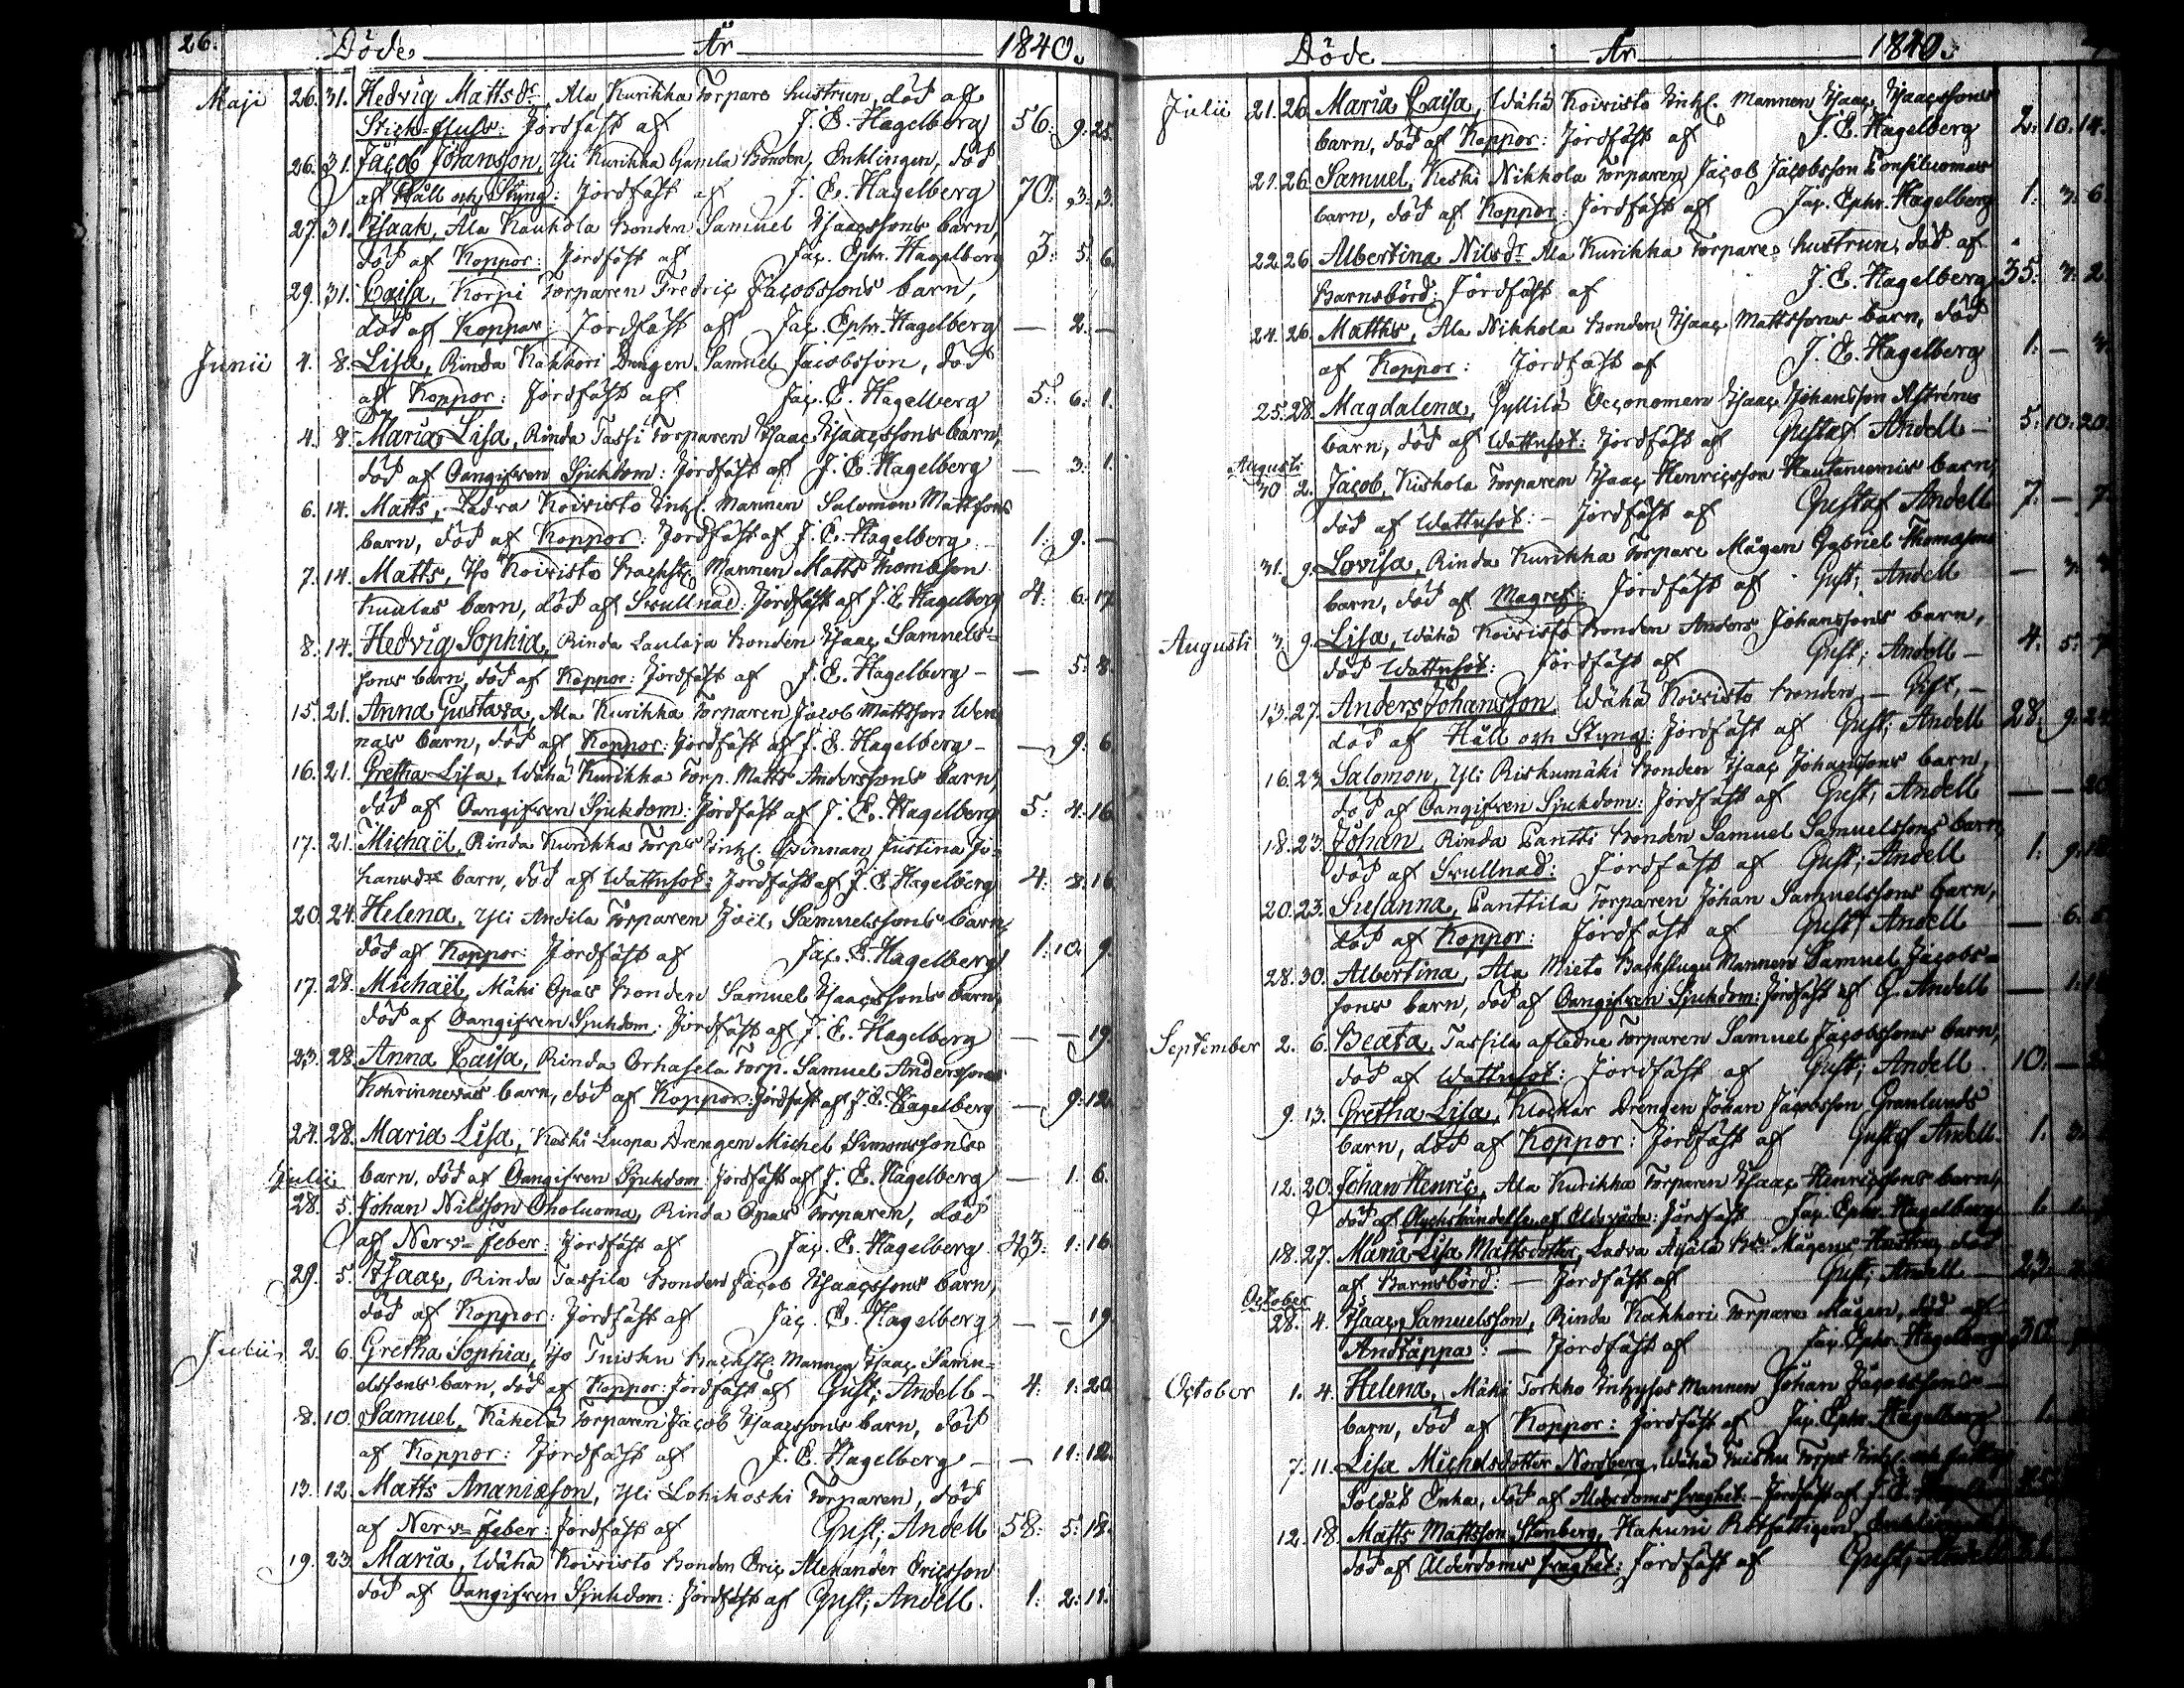 26. Döde År 1840.
Maji 26. 31. Hedvig Mattsdr, Ala Kurikka Torpare hustrun, död af
Stick-fluss: Jordfäst af J. E. Hagelberg 56: 9: 25.
26. 31. Jacob Johansson, Yli Kurikka Gamla Bonden, Enklingen, död
af Håll och Styng: Jordfäst af J. E. Hagelberg 70: 3: 3.
27. 31. Isaak, Ala Kauhola Bonden Samuel Isaacssons barn,
död af Koppor: Jordfäst af Jac. Ephr. Hagelberg 3: 5: 6.
29. 31. Caisa, Korpi Torparen Fredric Jacobssons barn,
död af Koppor: Jordfäst af Jac. Ephr. Hagelberg — 2. —
Junii 4. 8. Lisa, Rinda Kakkori Drengen Samuel Jacobsson, död
af Koppor: Jordfäst af Jac. E. Hagelberg 5: 6: 1.
4. 8. Maria Lisa, Rinda Tassi Torparen Isaac Isaacssons barn,
död af Oangifven Sjukdom: Jordfäst af J. E. Hagelberg — 3: 1.
6. 14. Matts, Ladva Koivisto Inh. Mannen Salomon Mattssons
barn, död af Koppor: Jordfäst af J. E. Hagelberg 1: 9. —
7. 14. Matts, Iso Koivisto Backst. Mannen Matts Thomasson
barn, död af Svullnad: Jordfäst af J. E. Hagelberg 4: 6: 17.
8. 14. Hedvig Sophia, Rinda Laulaja Bonden Isaac Samuels-
sons barn, död af Koppor: Jordfäst af J. E. Hagelberg — — 5: 8.
15. 21. Anna Gustava, Ala Kurikka Torparen Jacob Mattsson Wen
nas barn, död af Koppor: Jordfäst af J. E. Hagelberg — — 9: 6.
16. 21. Gretha Lisa, Wähä Kurikka Torp. Matts Anderssons barn,
död af Oangifven Sjukdom: Jordfäst af J. E. Hagelberg 5: 4: 16.
17. 21. Michaël, Rinda Kurikka Torps Inh. Qvinnan Justina Jo-
hansdrs barn, död af Wattusot: Jordfäst af J. E. Hagelberg 4: 8: 16.
20. 24. Helena, Yli Andila Torparen Joel Samuelssons barn,
död af Koppor: Jordfäst af Jac. E. Hagelberg 1: 10. 9.
17. 28. Michaël, Mäki Opas Bonden Samuel Isaacssons barn,
död af Oangifven Sjukdom: Jordfäst af J. E. Hagelberg — — 19.
23. 28. Anna Caisa, Rinda Orhasela Torp. Samuel Anderssons
barn, död af Koppor: Jordfäst af J. E. Hagelberg — 9: 12.
24. 28. Maria Lisa, Keski Luopa Drengen Michel Simonssons
barn, död af Oangifven Sjukdom: Jordfäst af J. E. Hagelberg — 1: 6.
Julii
28. 5. Johan Nilsson Oholuoma, Rinda Opas Torparen, död
af Nerv-Feber: Jordfäst af Jac. E. Hagelberg 43: 1: 16.
29. 5. Isaac, Rinda Tassila Bonden Jacob Isaacssons barn,
död af Koppor: Jordfäst af Jac. E. Hagelberg — — 19.
Julii 2. 6. Gretha Sophia, Iso Tuisku Backst. Mannen Isaac Samu-
elssons barn, död af Koppor: Jordfäst af Gust; Andell — 4: 1: 20.
8. 10. Samuel, Käkelä Torparen Jacob Isaacssons barn, död
af Koppor: Jordfäst af J. E. Hagelberg — — 11: 12.
13. 12. Matts Ananiæson, Yli Lohikoski Torparen, död
af Nerv-Feber: Jordfäst af Gust; Andell 58: 5: 12.
19. 23. Maria, Wähä Koivisto Bonden Eric Alexander Ericsson
död af Oangifven Sjukdom: Jordfäst af Gust; Andell. 1: 2: 11.
Döde År 1840.
Julii 21. 26. Maria Caisa, Wähä Koivisto Inh. Mannen Isaac Isaacssons
barn, död af Koppor: Jordfäst af J. E. Hagelberg 2: 10: 14.
21. 26. Samuel, Keski Nikkola Torparen Jacob Jacobsson
barn, död af Koppor: Jordfäst af Jac. Ephr. Hagelberg 1: 3: 6.
22. 26. Albertina Nilsdr Ala Kurikka Torpare hustrun, död af
Barnsbörd: Jordfäst af J. E. Hagelberg 35: 3: 2.
24. 26. Matths, Ala Nikkola Bonden Isaac Mattssons barn, död
af Koppor: Jordfäst af J. E. Hagelberg 1: —
25. 28. Magdalena, Gyllilä Oeconomen Isaac Johansson Aströms
barn, död af Wattusot: Jordfäst af Gustaf Andell — 5: 10: 20.
Augusti
30 2. Jacob, Kiskola Torparen Isaac Henricsson Hautaniemis barn,
död af Wattusot: — Jordfäst af Gustaf Andell 7. — 7.
31. 9. Lovisa, Rinda Kurikka Torpare Mågen Gabriel Thomasons
barn, död af Magref: Jordfäst af Gust; Andell — 3:
Augusti 3. 9. Lisa, Wähä Koivisto Bonden Anders Johanssons barn,
död Wattusot: Jordfäst af Gust; Andell — 4: 5: 7
13. 27. Anders Johansson, Wähä Koivisto Bonden, — Gift, —
död af Håll och Styng: Jordfäst af Gust; Andell 28. 9: 24.
16. 23. Salomon, Yli Riskumäki Bonden Isaac Johanssons barn,
död af Oangifven Sjukdom: Jordfäst af Gust; Andell — —
18. 23. Johan, Rinda Pantti Bonden Samuel Samuelssons barn,
död af Svullnad: Jordfäst af Gust; Andell 1: 9:
20. 23. Susanna, Panttila Torparen Johan Samuelssons barn,
död af Koppor: Jordfäst af Gust; Andell — 6:
28. 30. Albertina, Ala Mieto Backstugu Mannen Samuel Jacobs-
sons barn, död af Oangifven Sjukdom: Jordfäst af G. Andell — 1:
September 2. 6. Beata, Tassila afledne Torparen Samuel Jacobssons barn,
död af Wattusot: Jordfäst af Gust; Andell. 10: —
9. 13. Gretha Lisa, Klockar Drengen Johan Jacobsson Granlunds
barn, död af Koppor: Jordfäst af Gustaf Andell. 1:
12. 20. Johan Henric, Ala Kurikka Torparen Isaac Henricssons barn,
död af Olyckshändelse af Eldsvåda: Jordfäst Jac. Ephr. Hagelberg
18. 27. Maria Lisa Mattsdotter, Ladva Äijälä Mågens Hustru, död
af Barnsbörd: — Jordfäst af Gust; Andell — 23.
October
28. 4. Isaac Samuelsson, Rinda Kakkori Torpare Mågen, död af
Andtäppa: — Jordfäst af Jac. Ephr. Hagelberg
October 1. 4. Helena, Mäki Torkko Inhyses Mannen Johan Jacobssons
barn, död af Koppor: Jordfäst af Jac. Ephr. Hagelberg — 1.
7. 11. Lisa Michelsdotter Nordberg, Wähä Tuisku Torps
Soldat Enka, död af Ålderdoms svaghet: — Jordfäst af J. E. Hagelberg
12. 18. Matts Mattsson Stenberg, Hakuni Rotfattigen,
död af Ålderdoms svaghet: Jordfäst af Gust; Andell